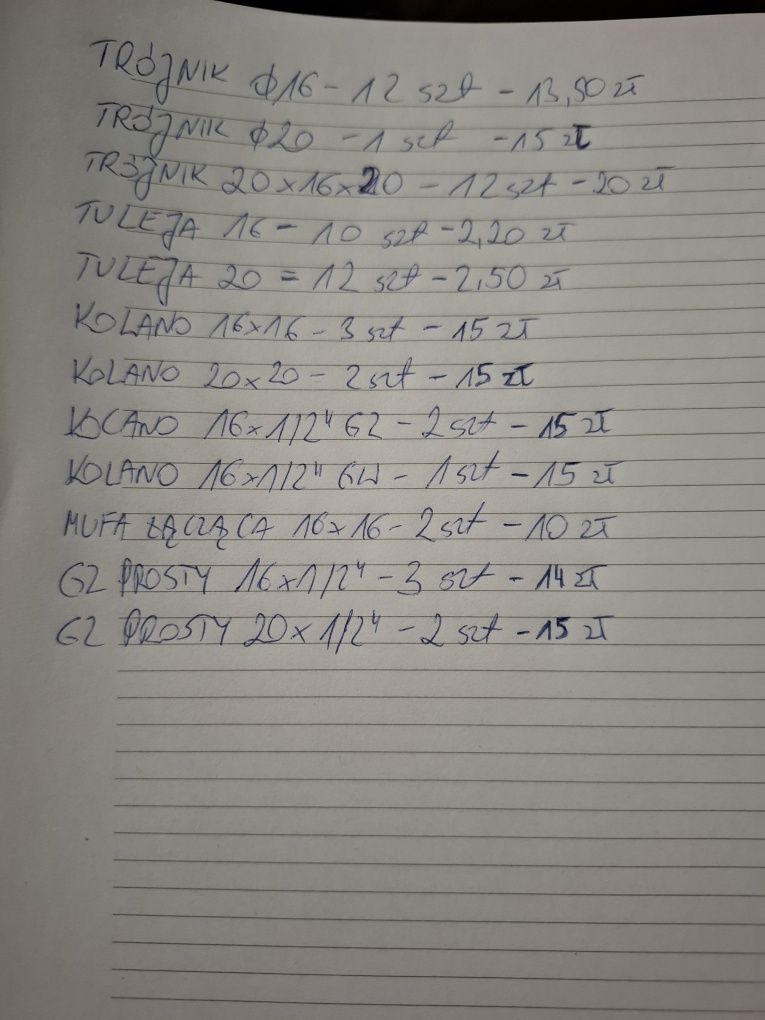 TRÓJNIK ϕ16 - 12 szt - 13,50 zł
TRÓJNIK ϕ20 - 1 szt - 15 zł
TRÓJNIK 20x16x20 - 12 szt - 20 zł
TULEJA 16 - 10 szt - 2,20 zł
TULEJA 20 = 12 szt - 2,50 zł
KOLANO 16x16 - 3 szt - 15 zł
KOLANO 20x20 - 2 szt - 15 zł
KOLANO 16x1/2" GZ - 2 szt - 15 zł
KOLANO 16x1/2" GW - 1 szt - 15 zł
MUFA ŁĄCZĄCA 16x16 - 2 szt - 10 zł
GZ PROSTY 16x1/2" - 3 szt - 14 zł
GZ PROSTY 20x1/2" - 2 szt - 15 zł